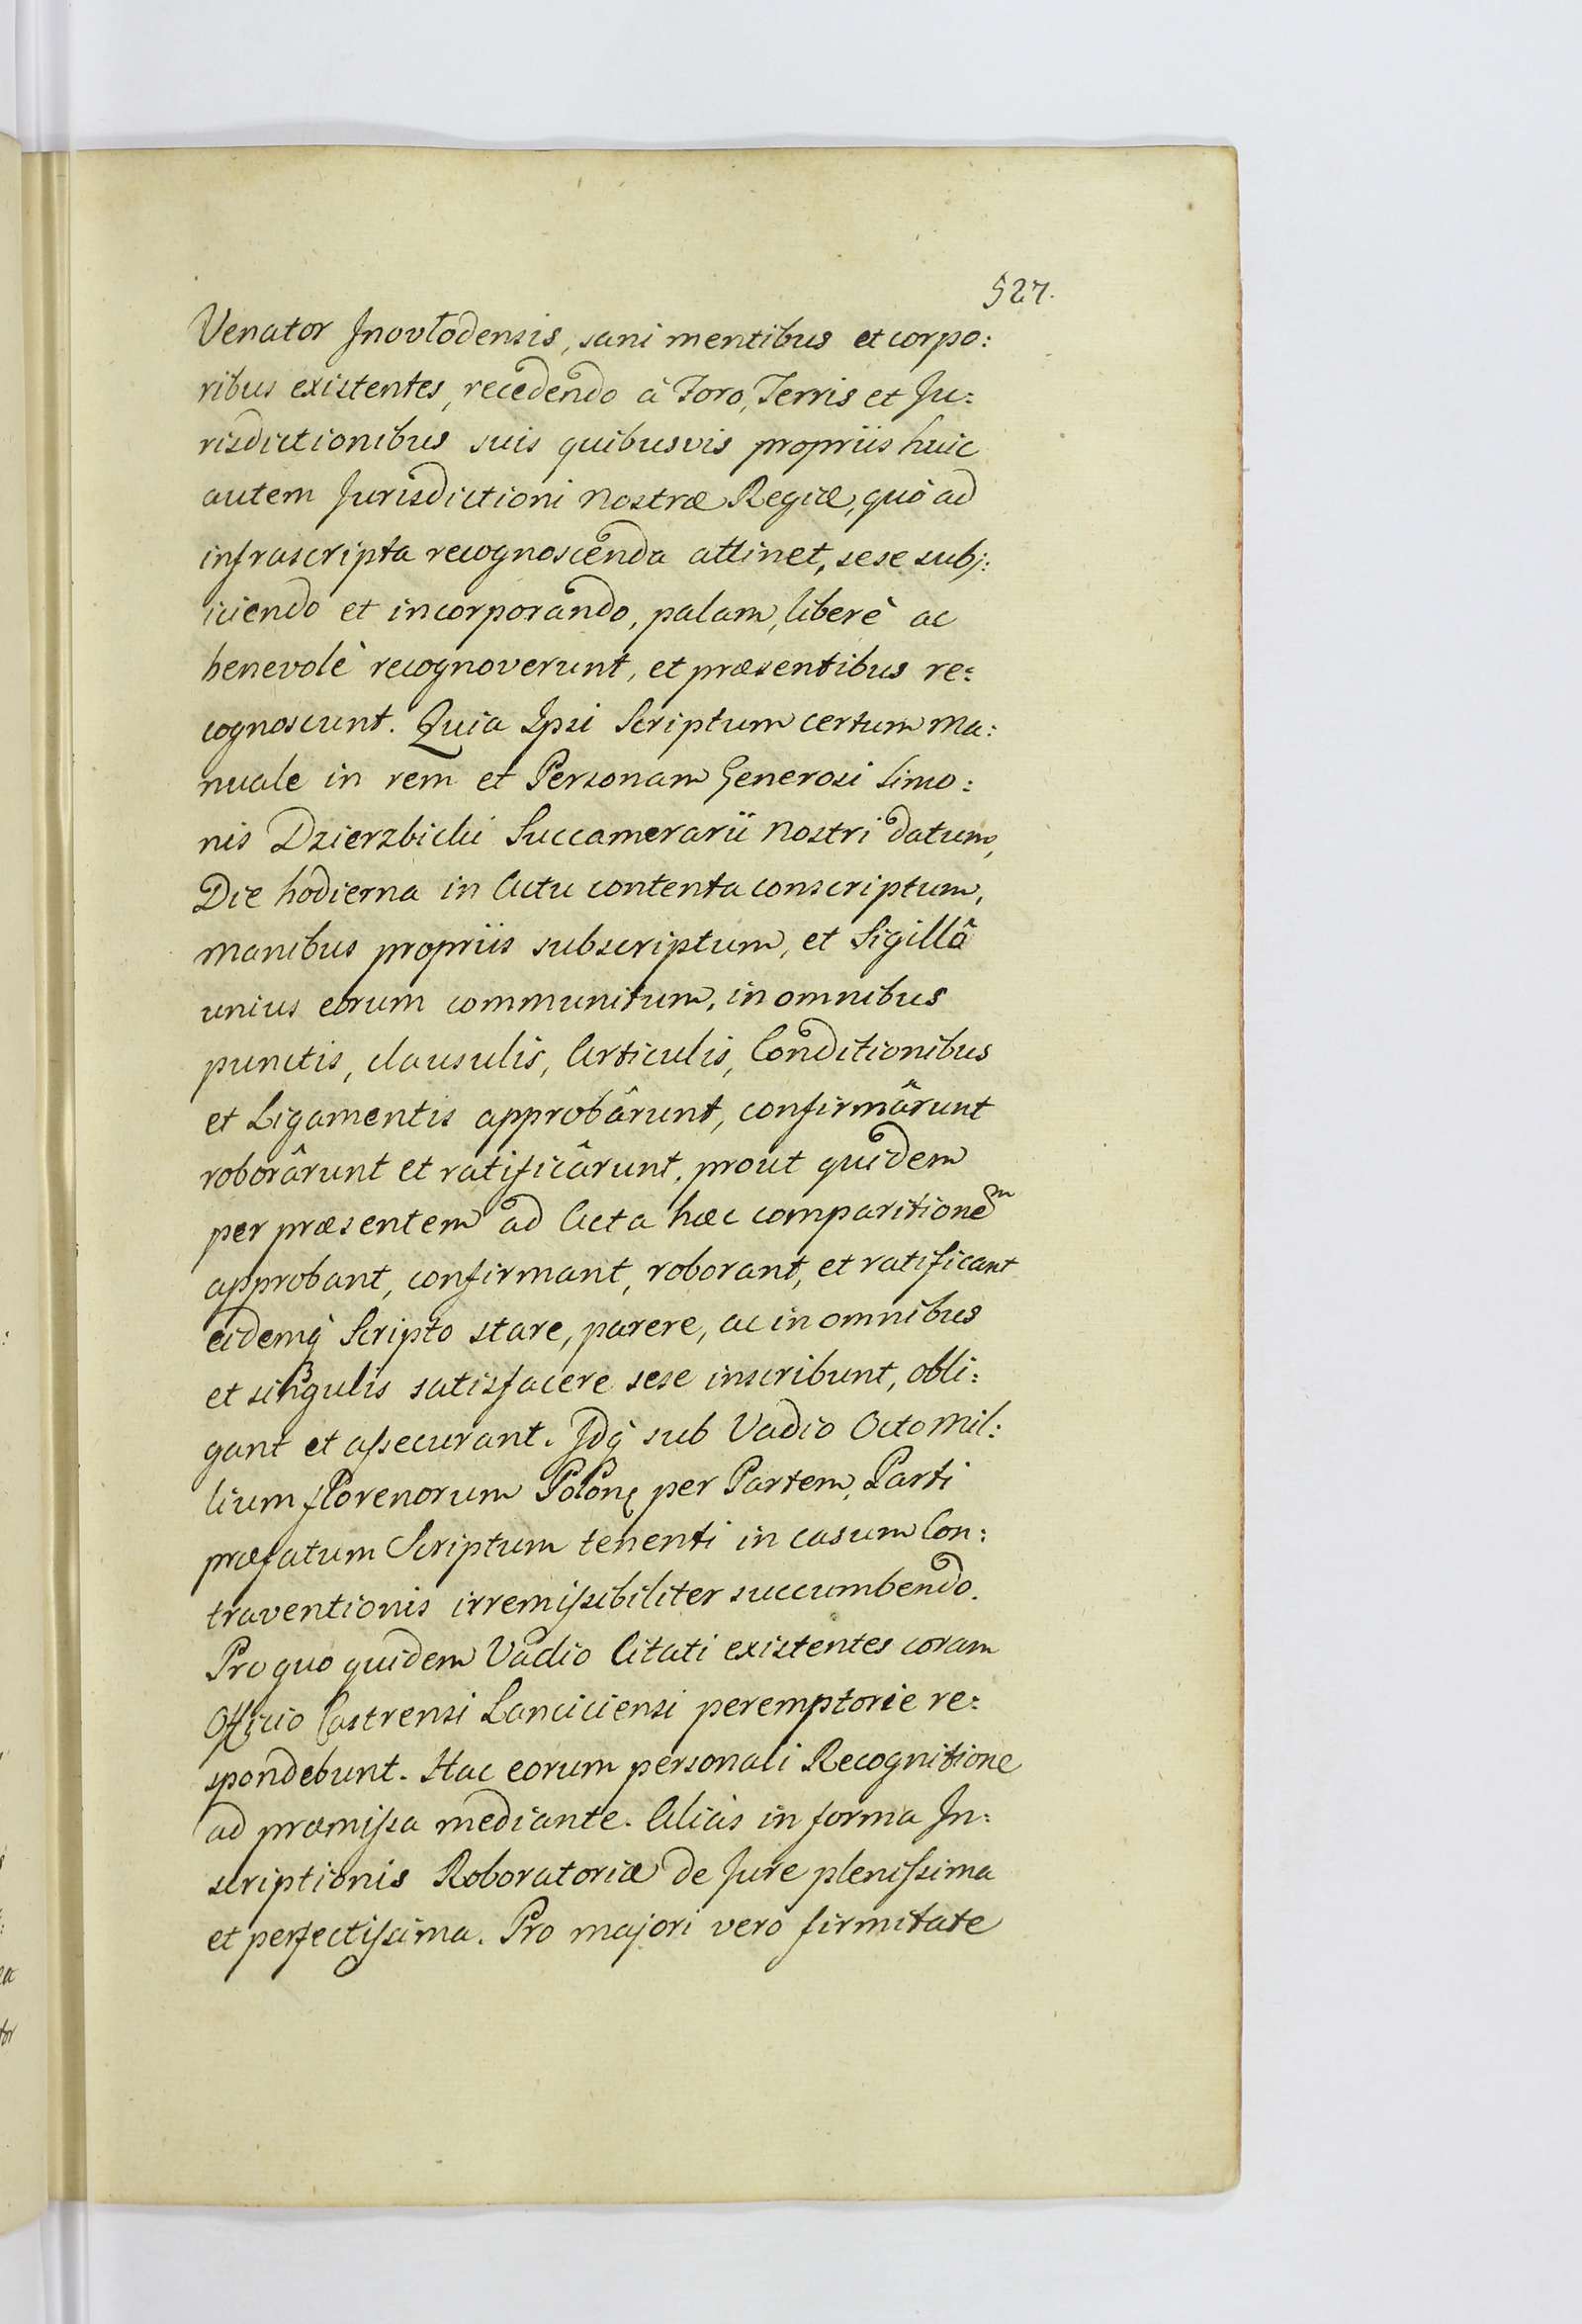 527.
Venator Jnovłodensis, sani mentibus et corpo:
ribus existentes, recedendo à Foro, Terris et Ju:
risdictionibus suis quibusvis propriis huic
autem Jurisdictioni Nostræ Regiæ, quò ad
infrascripta recognoscenda attinet, sese subj:
iciendo et incorporando, palam, liberè ac
benevolè recognoverunt, et præsentibus re:
cognoscunt. Quia Ipsi Scriptum certum Ma:
nuale in rem et Personam Generosi Simo:
nis Dzierzbicki Succamerarii Nostri datum,
Die hodierna in Actu contenta conscriptum,
Manibus propriis subscriptum, et Sigillô
unius eorum communitum, in omnibus
punctis, clausulis, Articulis, Conditionibus
et Ligamentis approbârunt, confirmârunt
roborârunt et ratificârunt, prout quidem
per præsentem ad Acta hæc comparitionem
approbant, confirmant, roborant, et ratificant
eidemq Scripto stare, parere, ac in omnibus
et singulis satisfacere sese inscribunt, obli:
gant et assecurant. Jdq sub Vadio Octo Mil:
lium florenorum Polonę per Partem, Parti
præfatum Scriptum tenenti in casum Con:
traventionis irremissibiliter succumbendo.
Pro quo quidem Vadio Citati existentes coram
Officio Castrensi Lanciciensi peremptorie re:
spondebunt. Hac eorum personali Recognitione
ad præmissa mediante. Aliàs in forma In:
scriptionis Roboratoriæ de Jure plenissima
et perfectissima. Pro majori vero firmitate